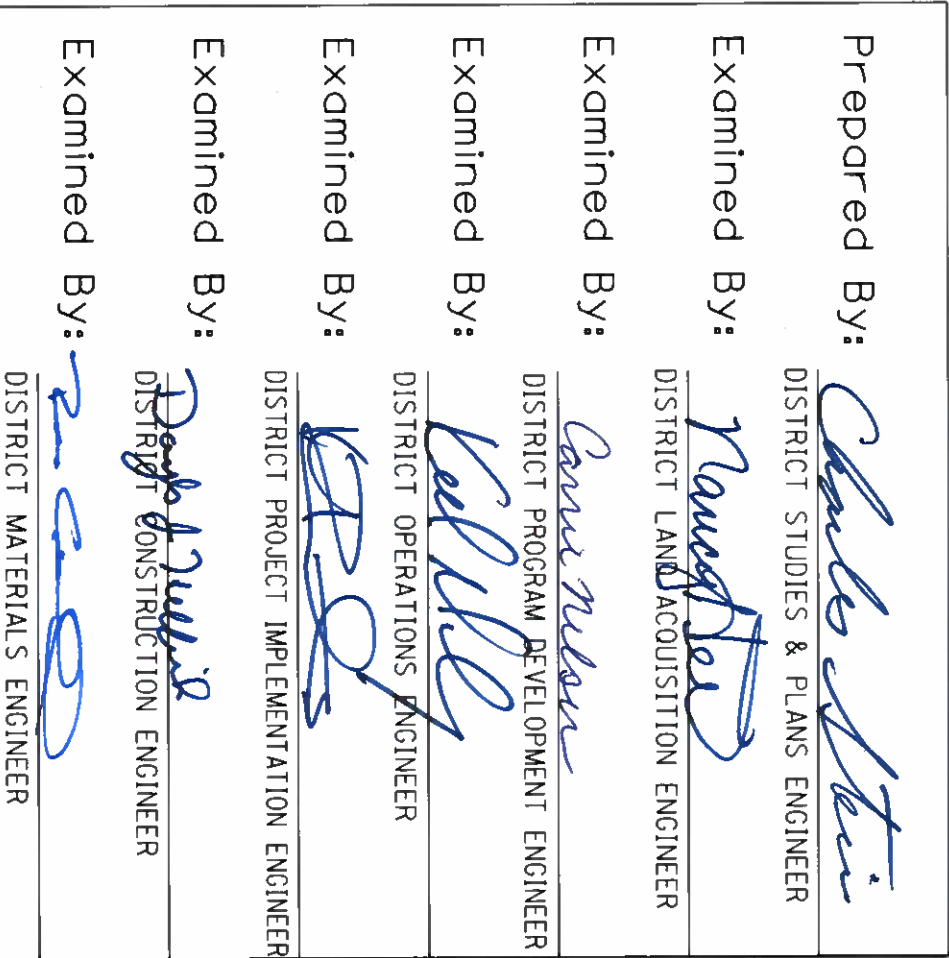 Prepared By: Charles Stein
DISTRICT STUDIES & PLANS ENGINEER
Examined By: Nancy
DISTRICT LAND ACQUISITION ENGINEER
Examined By: Carrie Nelson
DISTRICT PROGRAM DEVELOPMENT ENGINEER
Examined By:
DISTRICT OPERATIONS ENGINEER
Examined By:
DISTRICT PROJECT IMPLEMENTATION ENGINEER
Examined By:
DISTRICT CONSTRUCTION ENGINEER
Examined By:
DISTRICT MATERIALS ENGINEER